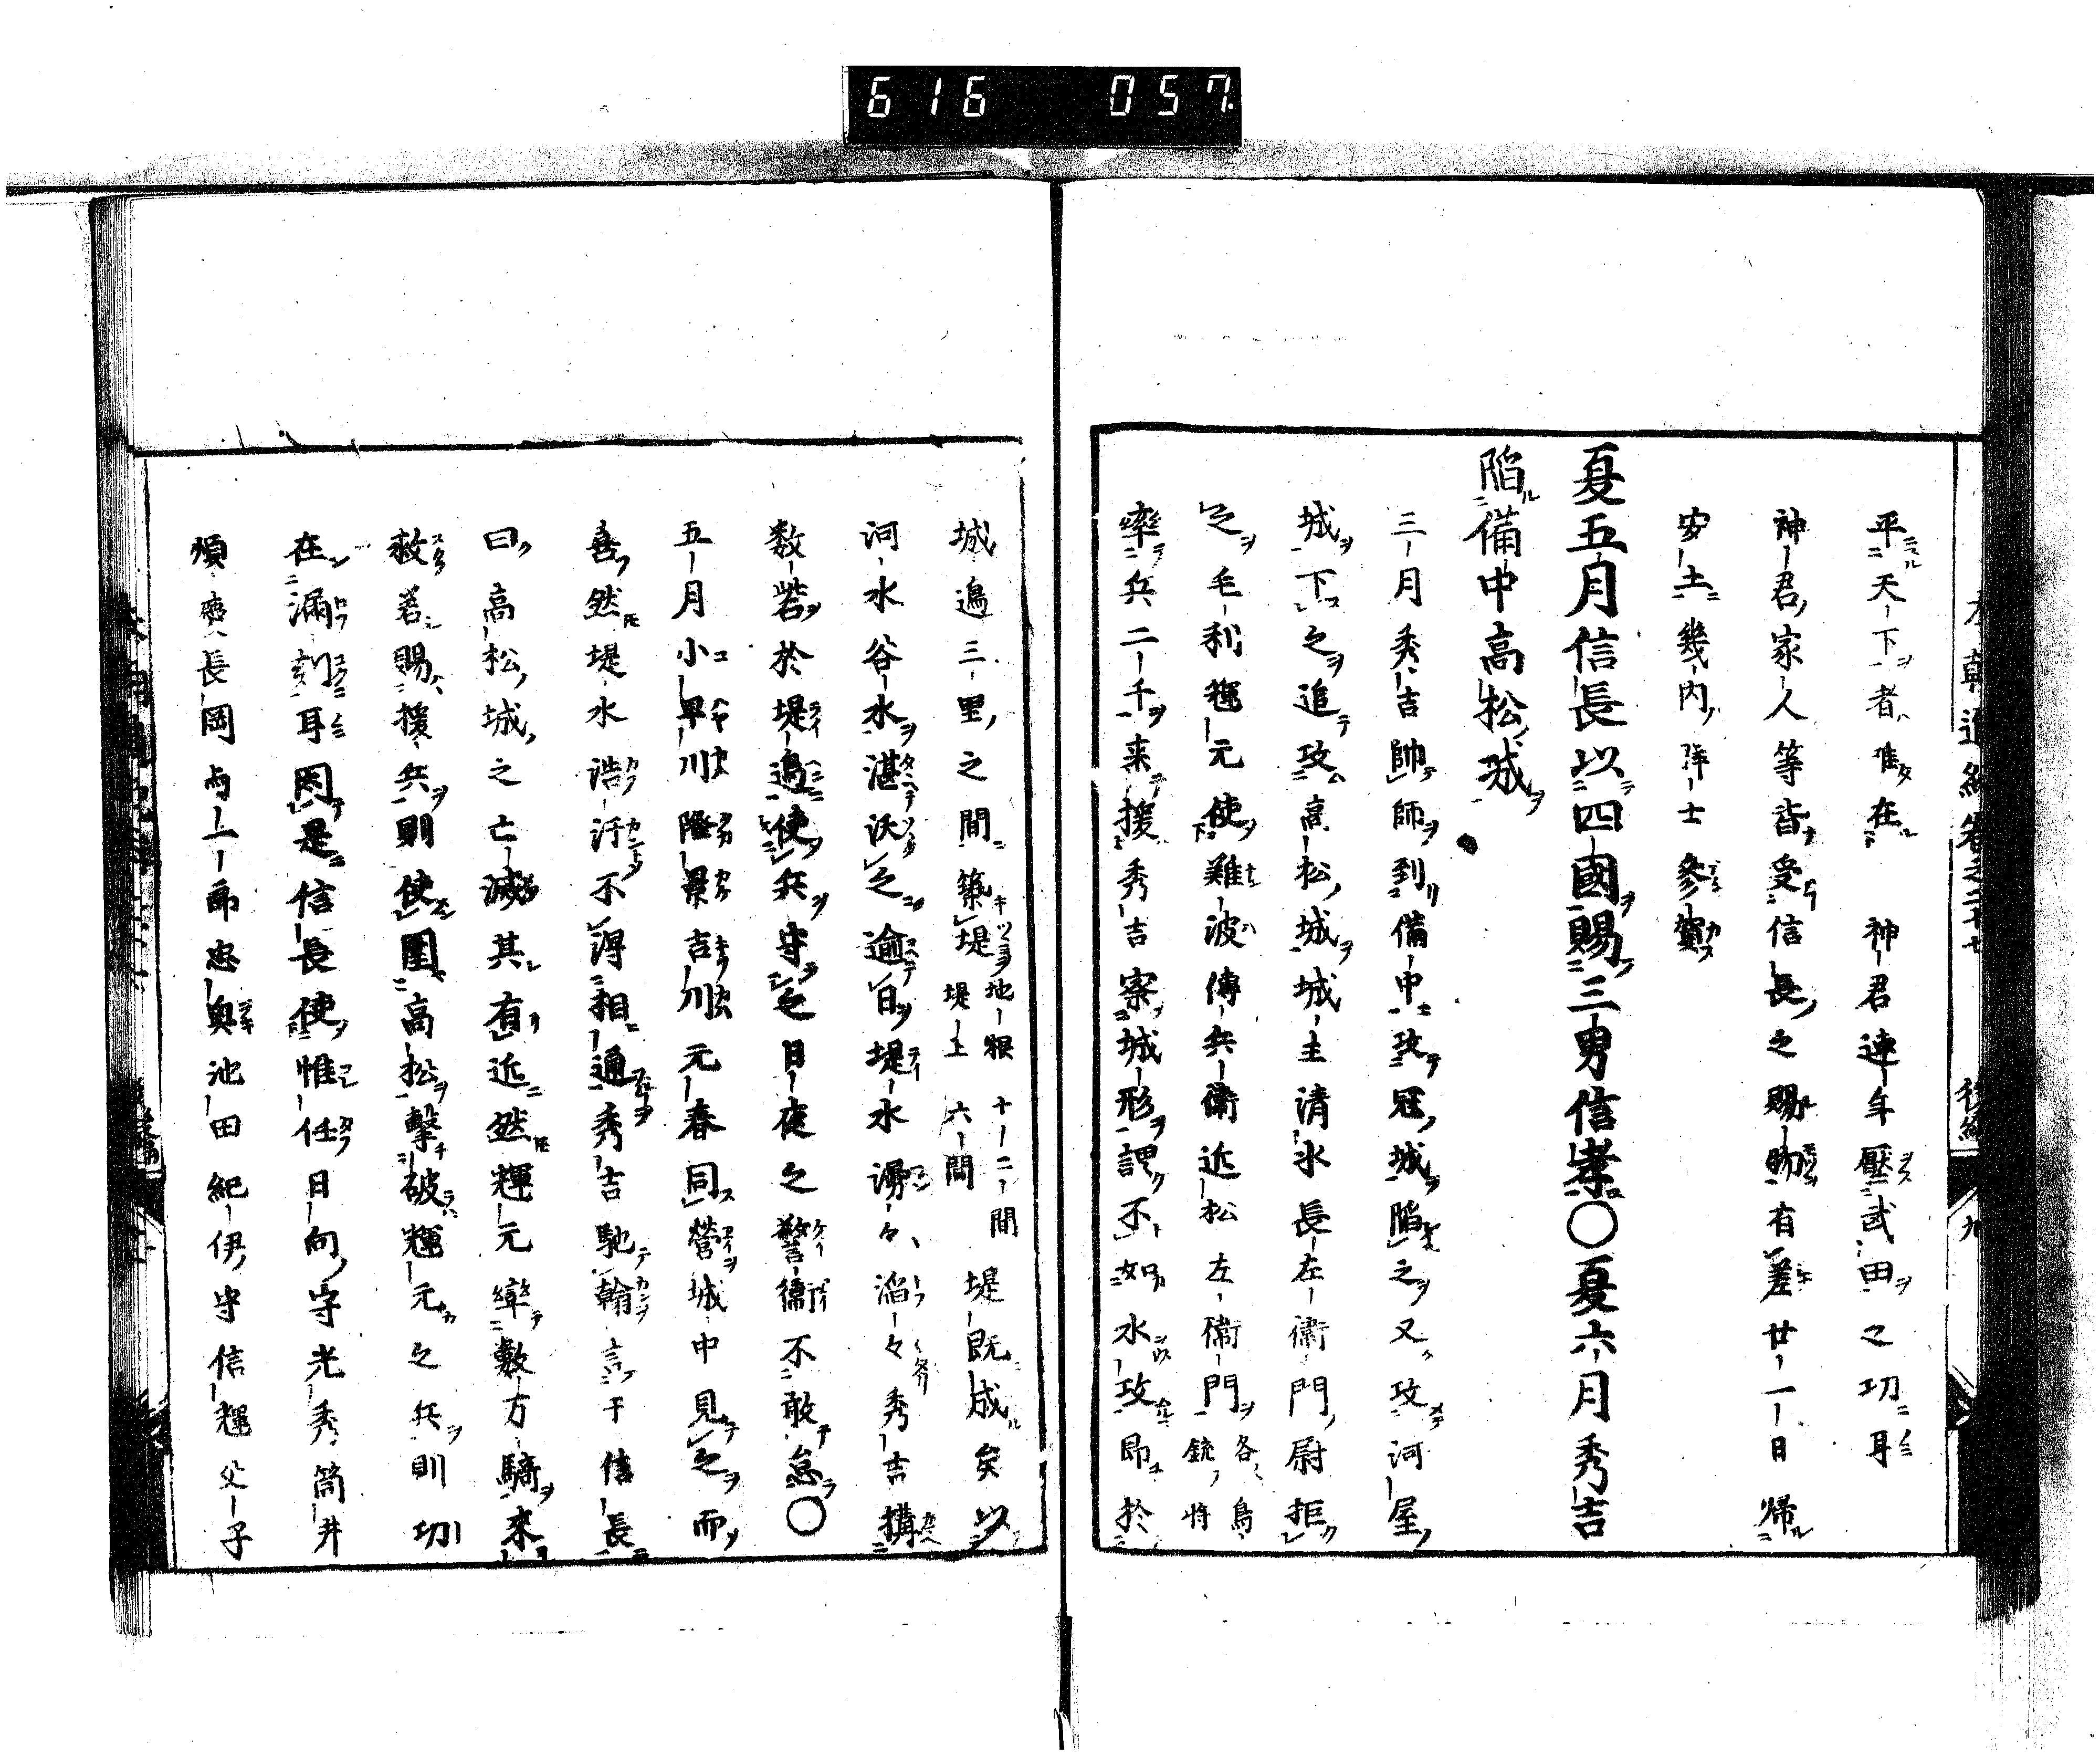 616 057
本朝通紀卷之二十七 後編 九
平天下者唯在 神君連年壓武田之功耳
神君家人等皆受信長之賜物有差廿一日帰
安土幾内降士參賀
夏五月信長以四國賜三男信孝〇夏六月秀吉
陷備中高松城
三月秀吉帥師到備中攻冠城陷之又攻河屋
城下之追攻高松城城主清水長左衛門尉拒
之毛利輝元使難波傳兵衛近松左衛門各鳥銃将
率兵二千来援秀吉察城形謂不如水攻即於
城邊三里之間築堤地根十二間堤上六間堤既成矣以
河水谷水湛沃之逾日堤水湧々滔々秀吉搆
数砦於堤邊使兵守之日夜之警衛不敢怠〇
五月小早川隆景吉川元春同營城中見之而
喜然堤水浩汗不得相通秀吉馳翰言于信長
曰高松城之亡滅其有近然輝元率數万騎来
救若賜援兵則使圍高松擊破輝元之兵則功
在漏刻耳因是信長使惟任日向守光秀筒井
順慶長岡与一郎忠興池田紀伊守信輝父子